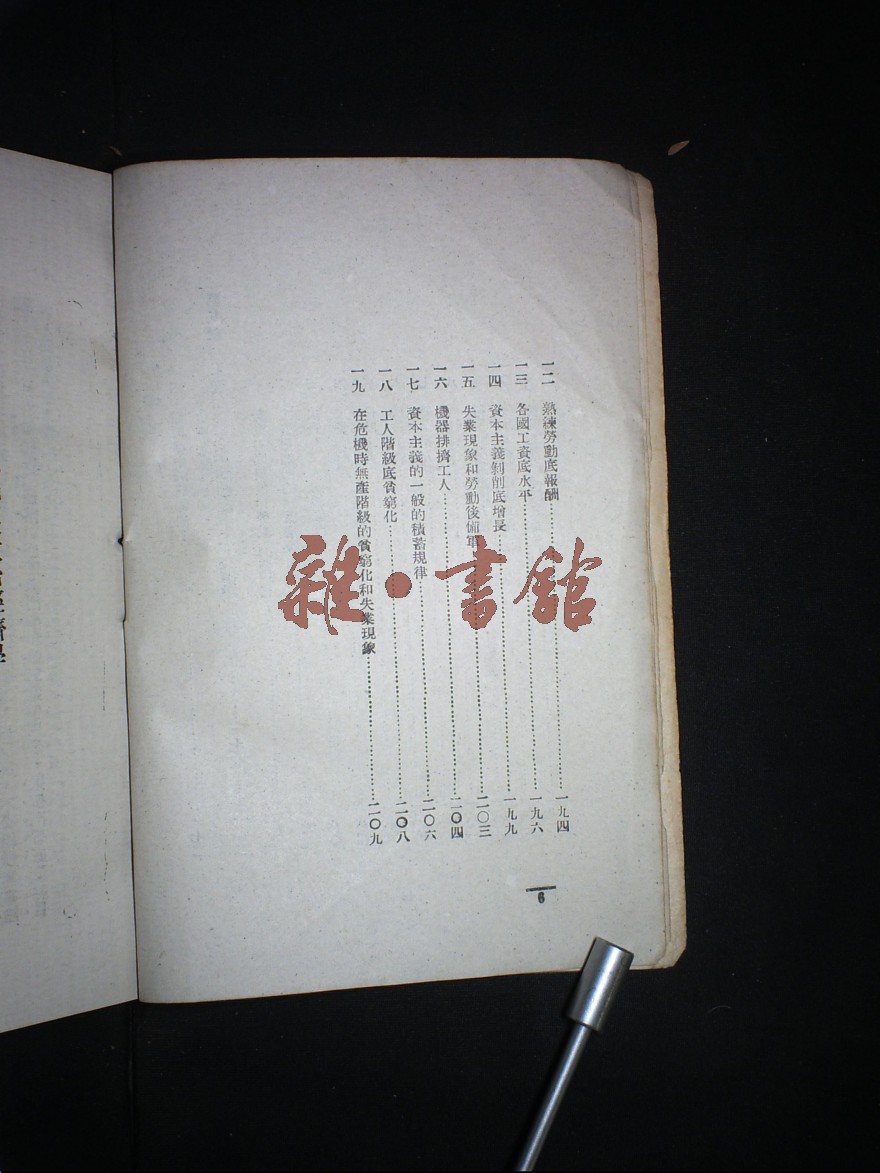 一二 熟練勞動底報酬……一九四
一三 各國工資底水平……一九六
一四 資本主義剝削底增長……一九九
一五 失業現象和勞動後備軍……二〇三
一六 機器排擠工人……二〇四
一七 資本主義的一般的積蓄規律……二〇六
一八 工人階級底貧窮化……二〇八
一九 在危機時無產階級的貧窮化和失業現象……二〇九
6
雜·書館